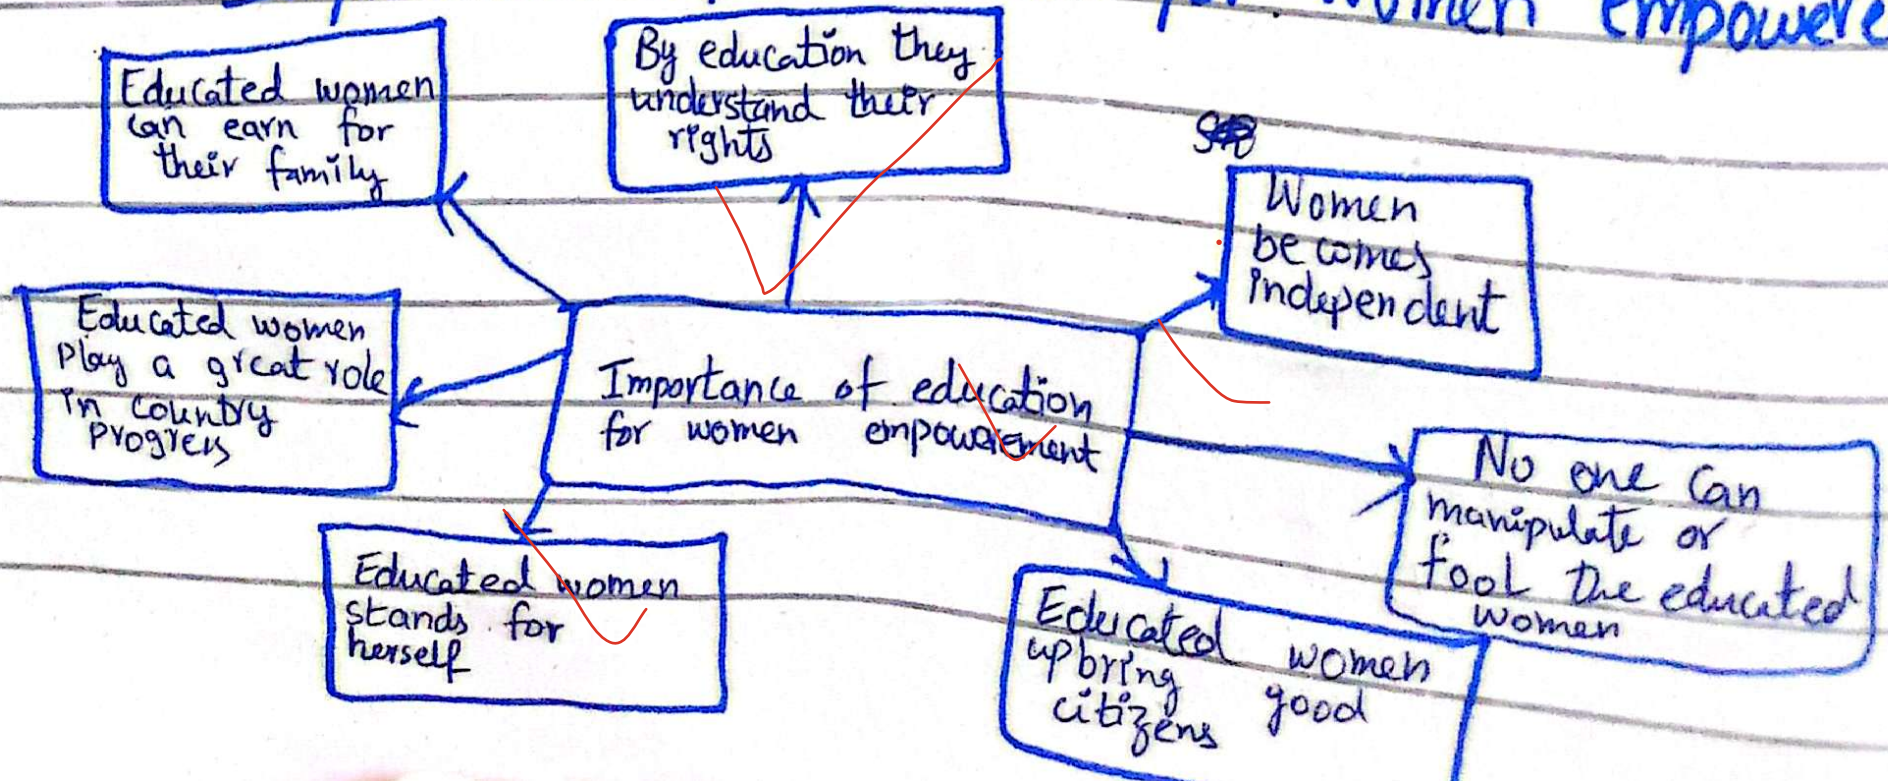 women empowere
Educated women
can earn for
their family
By education they
understand their
rights
Women
becomes
independent
Educated women
play a great role
in country
progress
Importance of education
for women empowerement
No one can
manipulate or
fool the educated
women
Educated women
stands for
herself
Educated women
upbring good
citizens